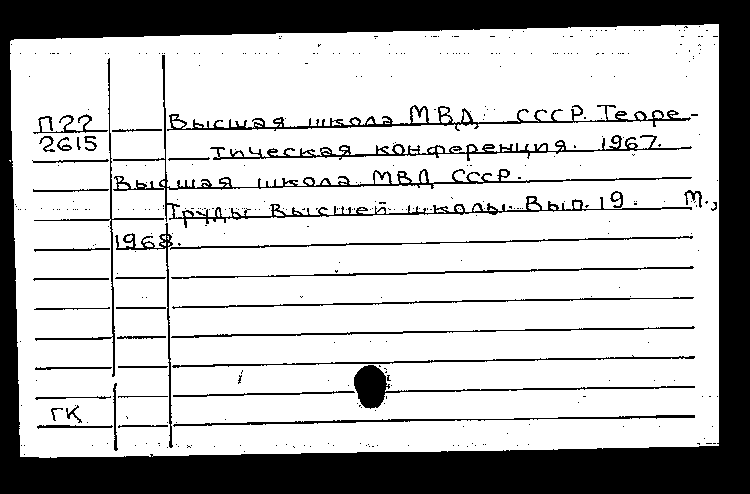 П22 Высшая школа МВД СССР. Теоре-
2615 тическая конференция. 1967.
Высшая школа МВД СССР.
Труды Высшей школы. Вып. 19. М.,
1968.
ГК